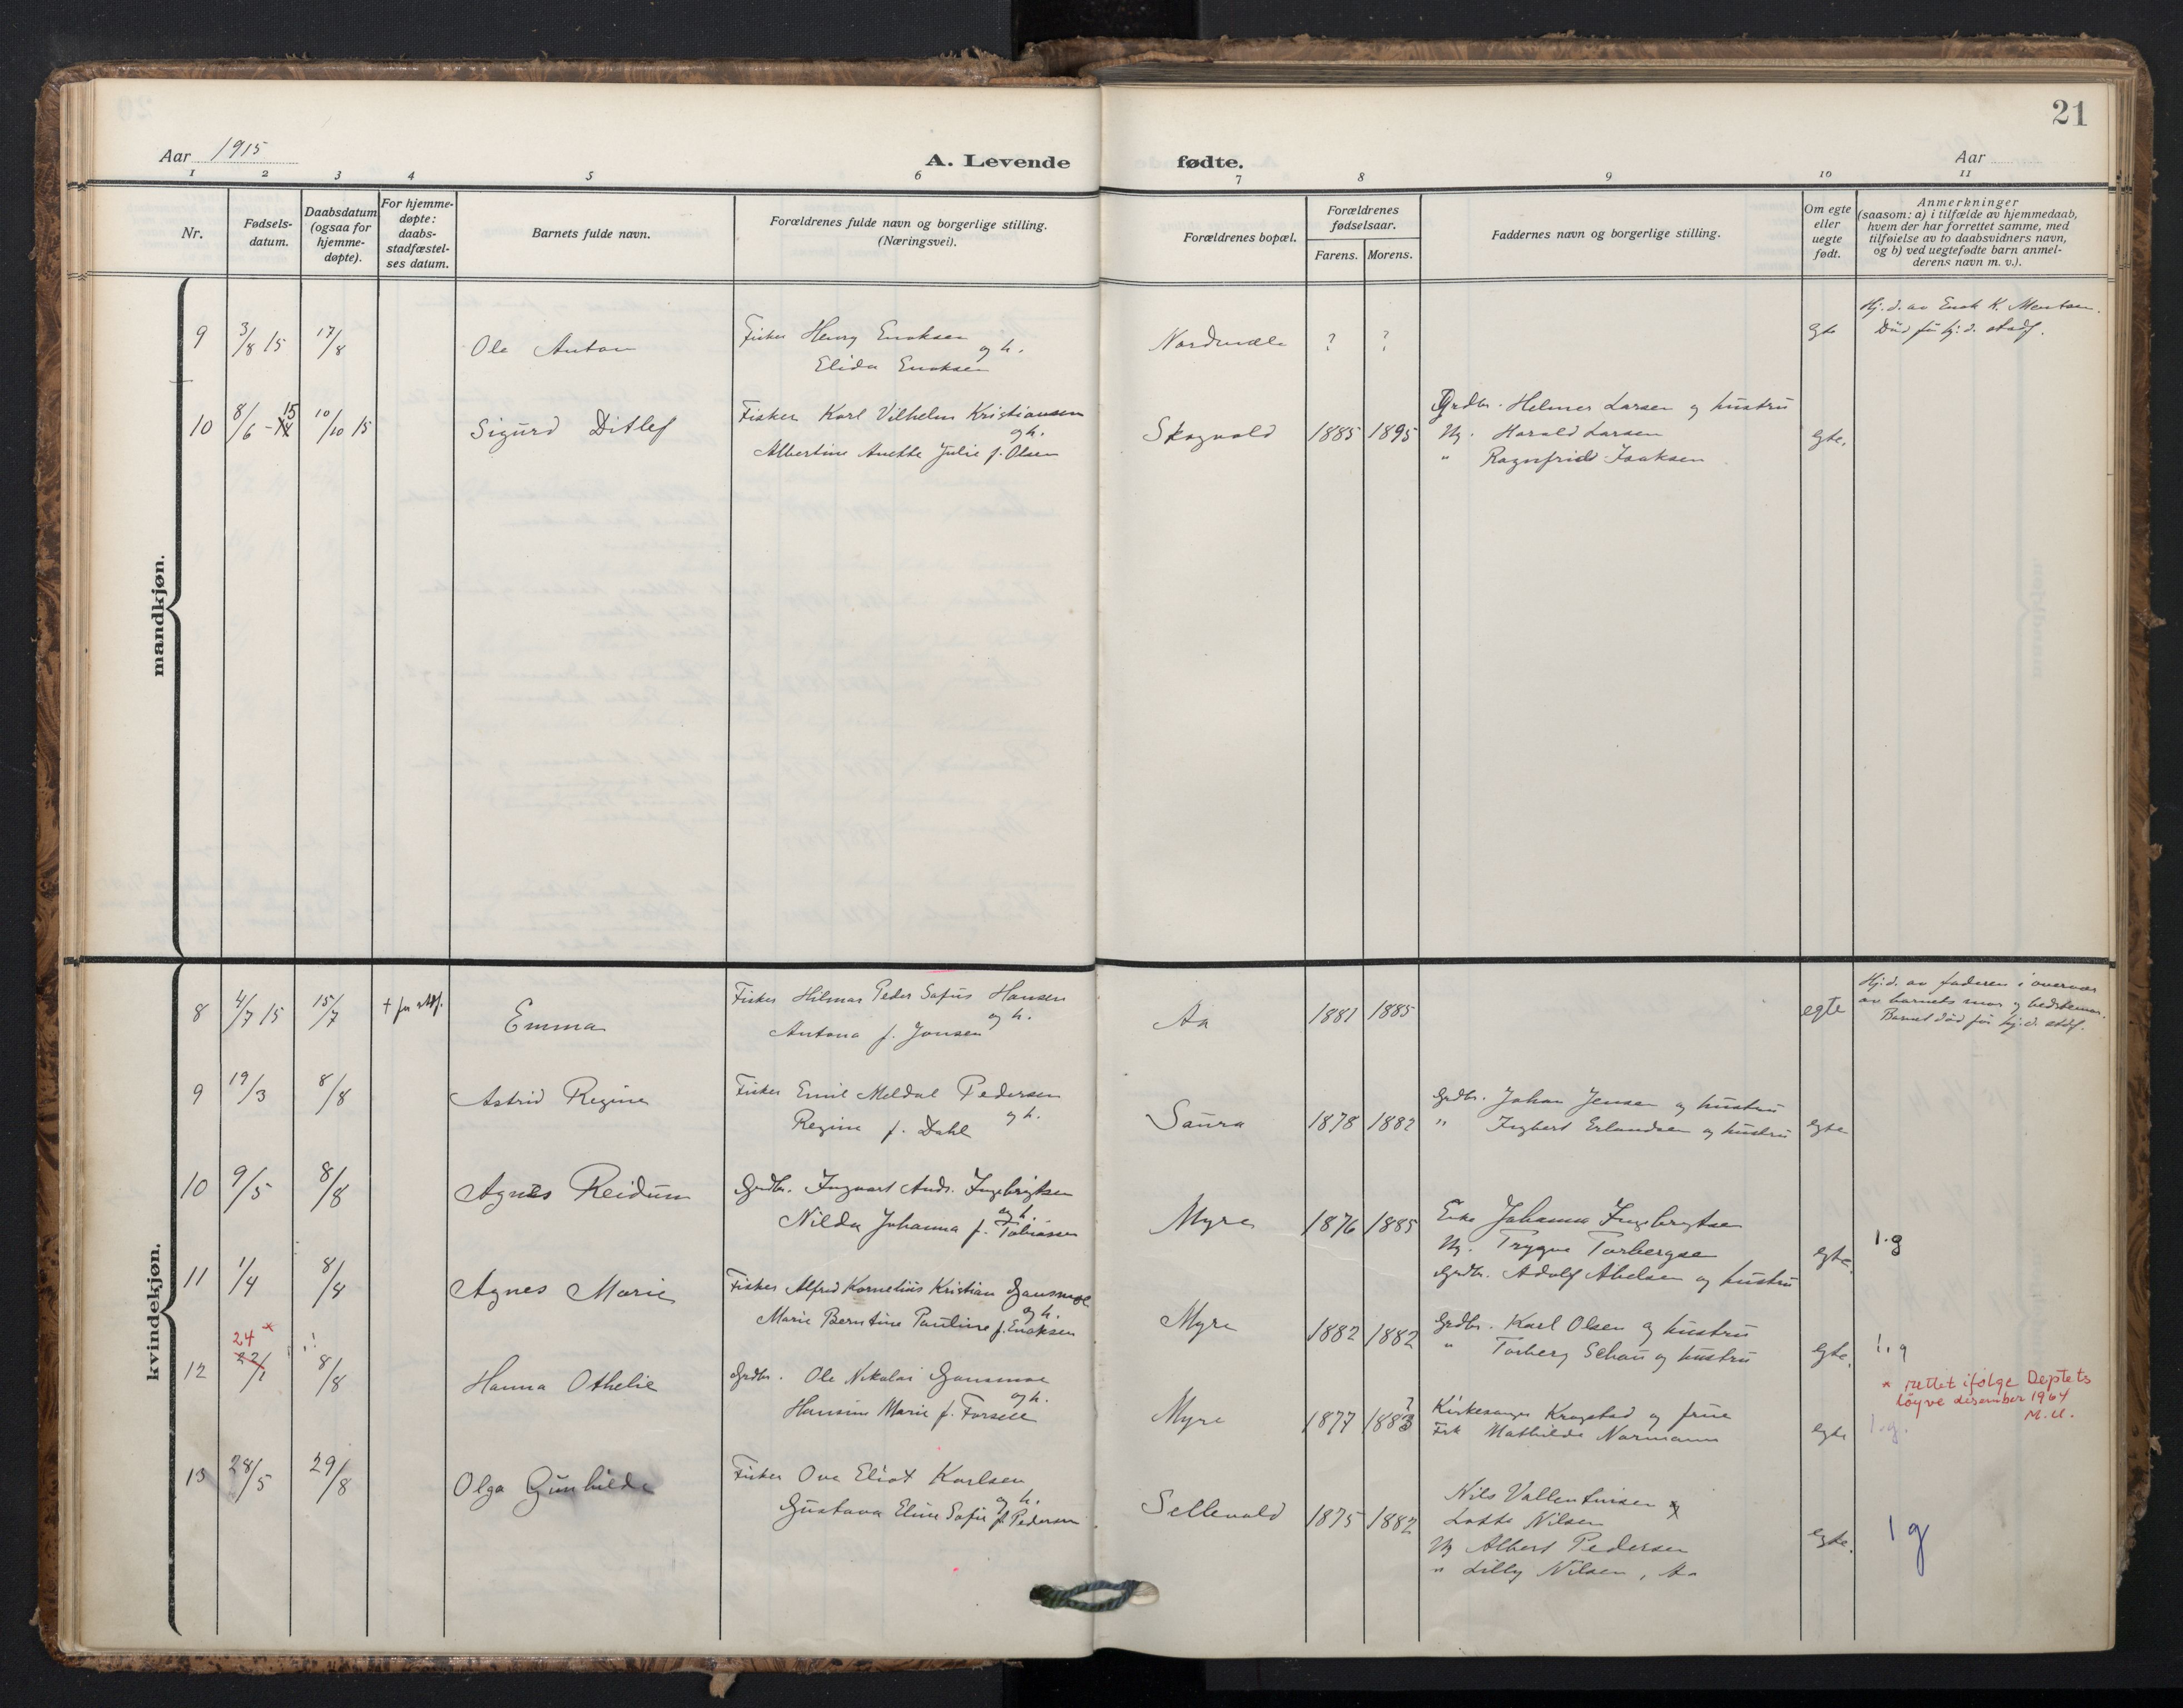 21
Aar 1915
A. Levende fødte.
Aar
1 2 3 4 5 6 7 8 9 10 11
Nr.
Fødsels-
datum.
Daabsdatum
(ogsaa for
hjemme-
døpte).
For hjemme-
døpte:
daabs-
stadfæstel-
ses datum.
Barnets fulde navn.
Forældrenes fulde navn og borgerlige stilling.
(Næringsvei).
Forældrenes bopæl.
Forældrenes
fødselsaar.
Farens. Morens.
Faddernes navn og borgerlige stilling.
Om egte
eller
uegte
født.
Anmerkninger
(saasom: a) i tilfælde av hjemmedaab,
hvem der har forrettet samme, med
tilføielse av to daabsvidners navn,
og b) ved uegtefødte barn anmel-
derens navn m. v.).
mandkjøn.
9 3/8 15 17/8 Ole Anton
Fisker Henry Enoksen
og h.
Elida Enoksen
Nordmæle ? ?
egte
Hj. d. av Enok K. Mentsen.
Död för hj. d. stadf.
10 8/6 -14 15 10/10 15 Sigurd Ditlef
Fisker Karl Vilhelm Kristiansen
og h.
Albertine Anette Julie f. Olsen
Skogvold 1885 1895
Grdbr. Helmer Larsen og hustru
Ug. Harald Larsen
" Ragnfrid Isaksen
egte.
kvindekjøn.
8 4/7 15 15/7 + før stdf. Emma
Fisker Hilmar Peder Sofus Hansen
og h.
Antona f. Jonsen
Aa 1881 1885
egte
Hj. d. av faderen i overvær
av barnets mor og bedstemor.
Barnet död för hj. d. stdf.
9 19/3 8/8 Astrid Regine
Fisker Emil Meldal Pedersen
og h.
Regine f. Dahl
Saura 1878 1882
Grdbr. Johan Jensen og hustru
" Ingbert Erlandsen og hustru
egte
10 9/5 8/8 Agnes Reidun
Grdbr. Ingvart Andr. Ingebrigtsen
og h.
Nilda Johanna f. Tobiassen
Myre 1876 1885
Enke Johanna Ingebrigtsen
Ug. Trygve Torbergsen
Grdbr. Adolf Abelsen og hustru
egte.
1.g
11 1/4 8/8 Agnes Marie
Fisker Alfred Kornelius Kristian Gansmoe
og h.
Marie Berntine Pauline f. Enoksen
Myre 1882 1882
Grdbr. Karl Olsen og hustru
" Torberg Schau og hustru
egte.
1.g
12 24 * 22/1 8/8 Hanna Othelie
Grdbr. Ole Nikolai Gansmoe
og h.
Hansine Marie f. Forseth
Myre 1877 1883 ?
Kirkesanger Krogstad og frue
Frk Mathilde Normann
egte
* rettet ifølge Deptets
løyve desember 1964
M. U.
1.g.
13 28/5 29/8 Olga Gunhilde
Fisker Ove Eliot Karlsen
og h.
Gustava Eline Sofie f. Pedersen
Sellevold 1875 1882
Nils Vallentinsen og
Lotte Nilsen
Ug Albert Pedersen
" Lilly Nilsen, Aa
egte.
1g